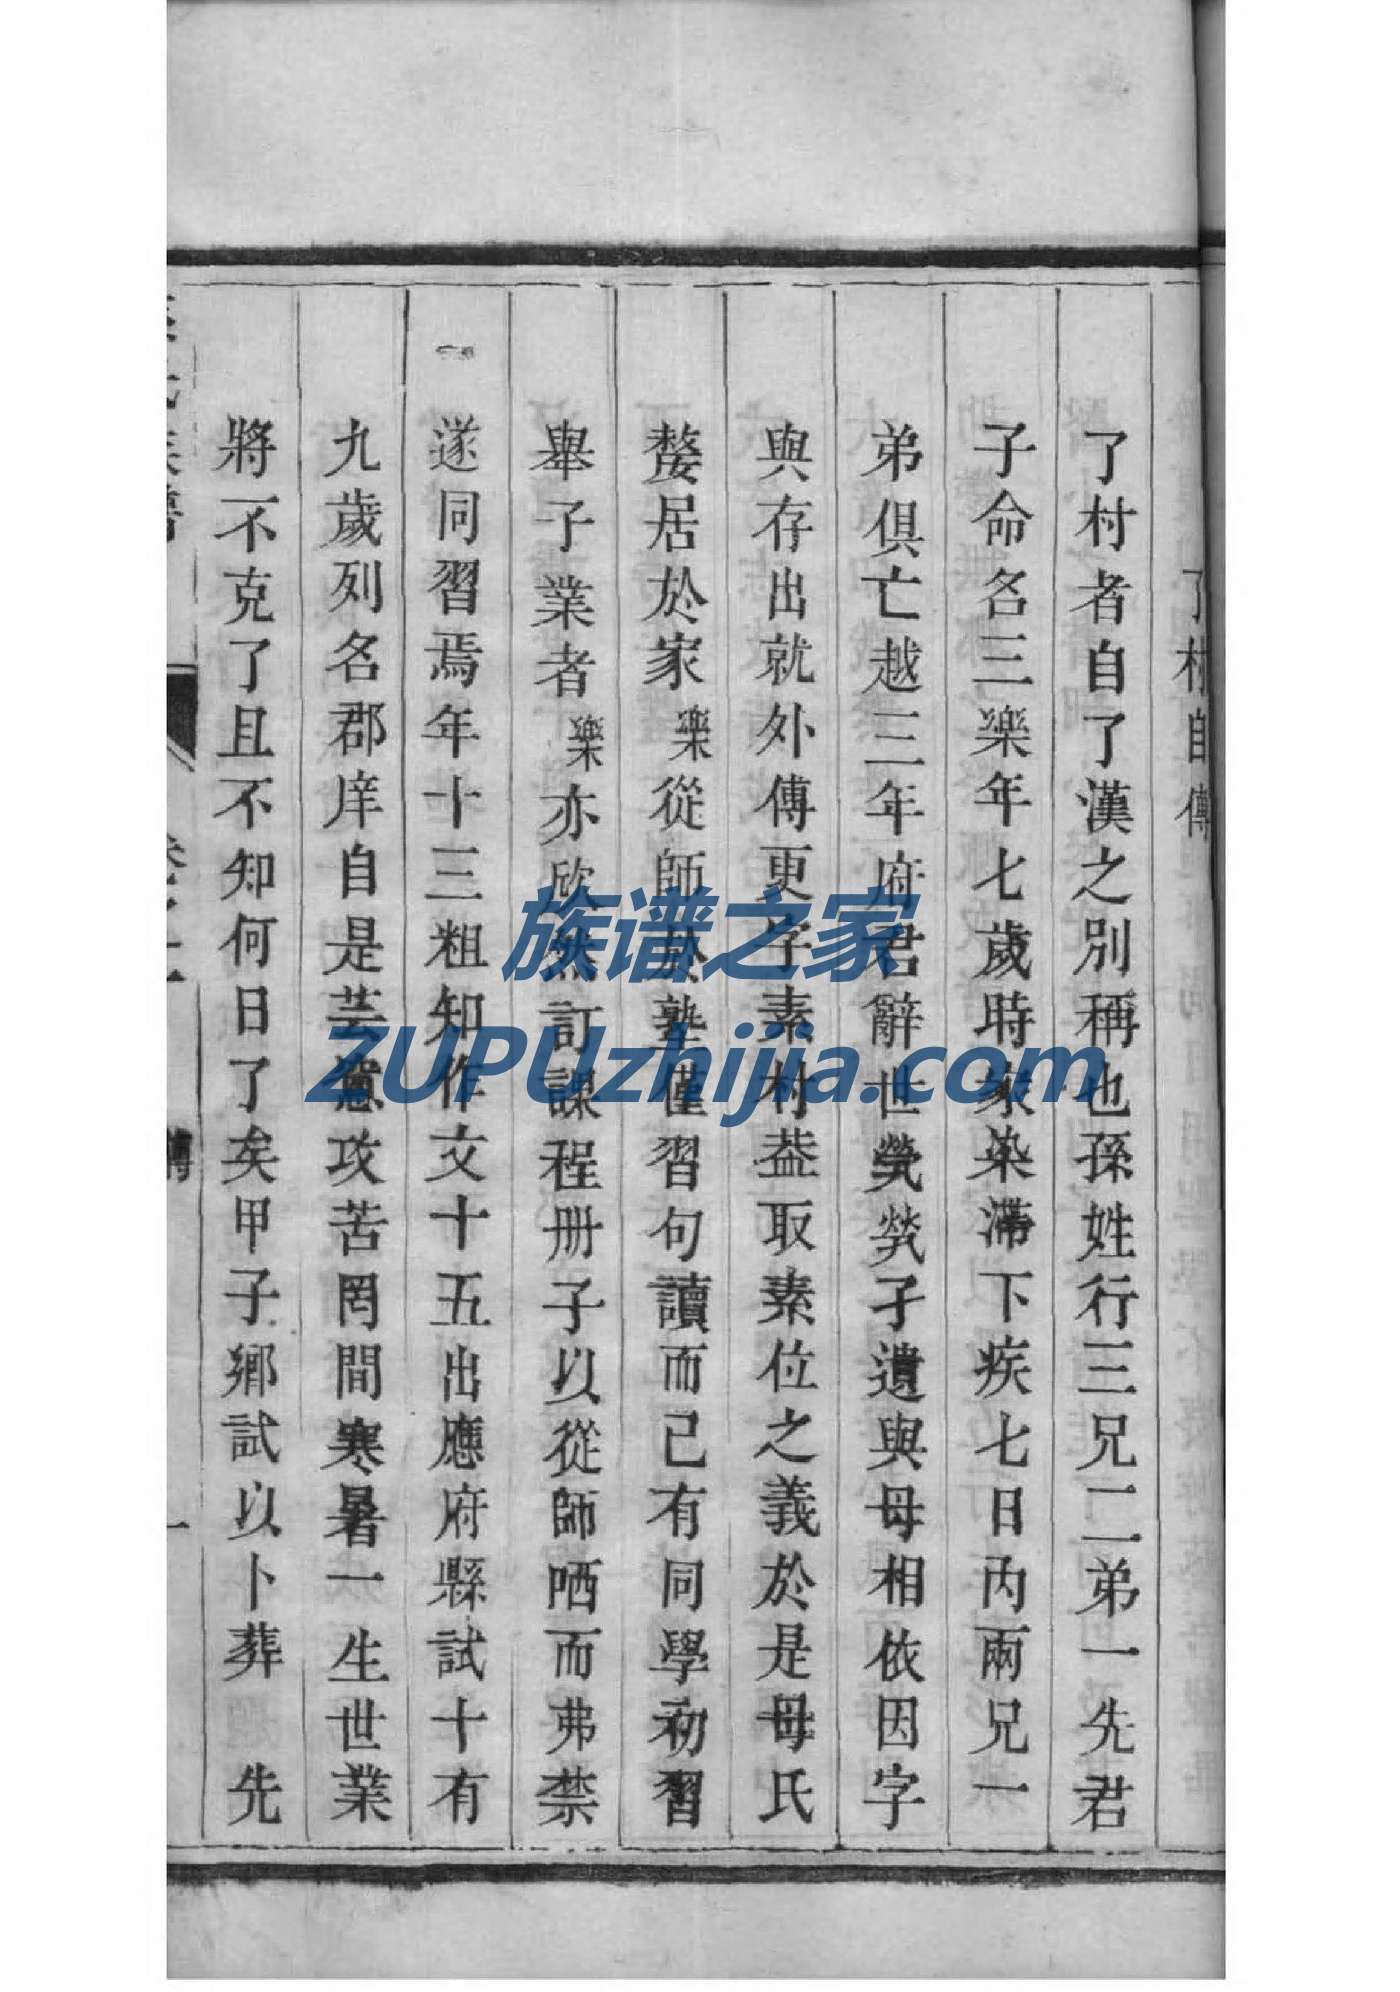 了村自傳
了村者自了漢之別稱也孫姓行三兄二弟一先君
子命名三樂年七歲時家染滯下疾七日內兩兄一
弟俱亡越三年府君辭世煢煢孑遺與母相依因字
與存出就外傅更字素村葢取素位之義於是母氏
嫠居於家樂從師於塾僅習句讀而已有同學初習
舉子業者樂亦欣然訂課程冊子以從師哂而弗禁
遂同習焉年十三粗知作文十五出應府縣試十有
九歲列名郡庠自是芸窻攻苦罔間寒暑一生世業
將不克了且不知何日了矣甲子鄉試以卜葬 先
族譜
傳
一
族谱之家
ZUPUzhijia.com